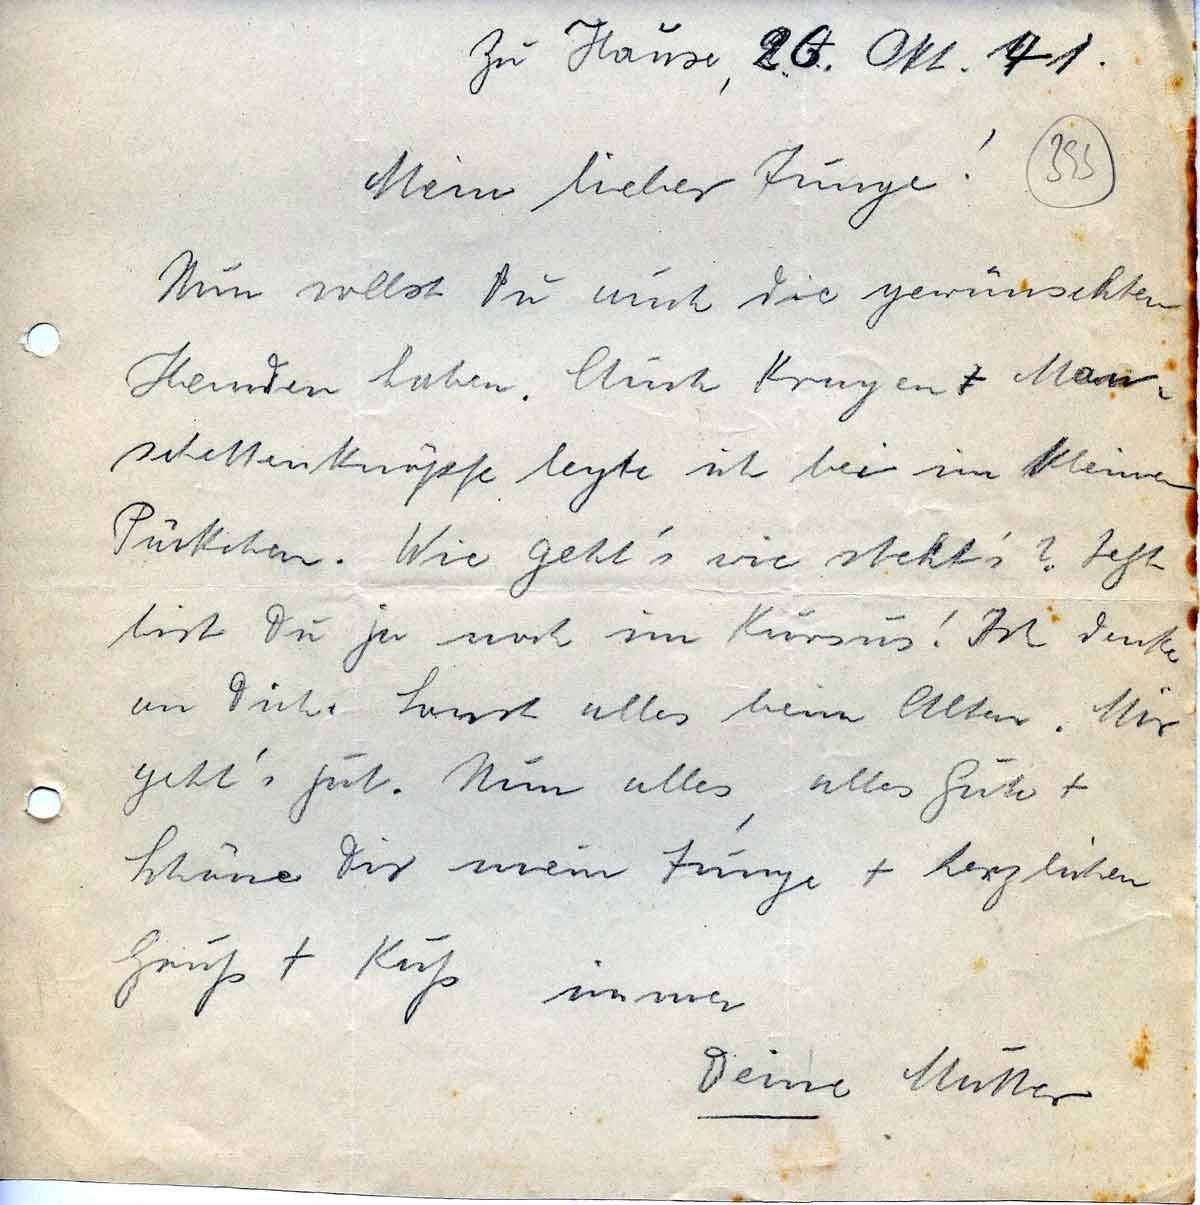 Zu Hause, 26. Okt. 41.
393
Mein lieber Junge!
Nun sollst Du auch die gewünschten
Hemden haben. Auch Kragen + Man-
schettenknöpfe legte ich bei im kleinen
Päckchen. Wie geht's wie steht's? Jetzt
bist Du ja noch im Kursus! Ich denke
an Dich. Sonst alles beim Alten. Mir
geht's gut. Nun alles, alles Gute +
Schöne Dir mein Junge + herzlichen
Gruß + Kuß immer
Deine Mutter